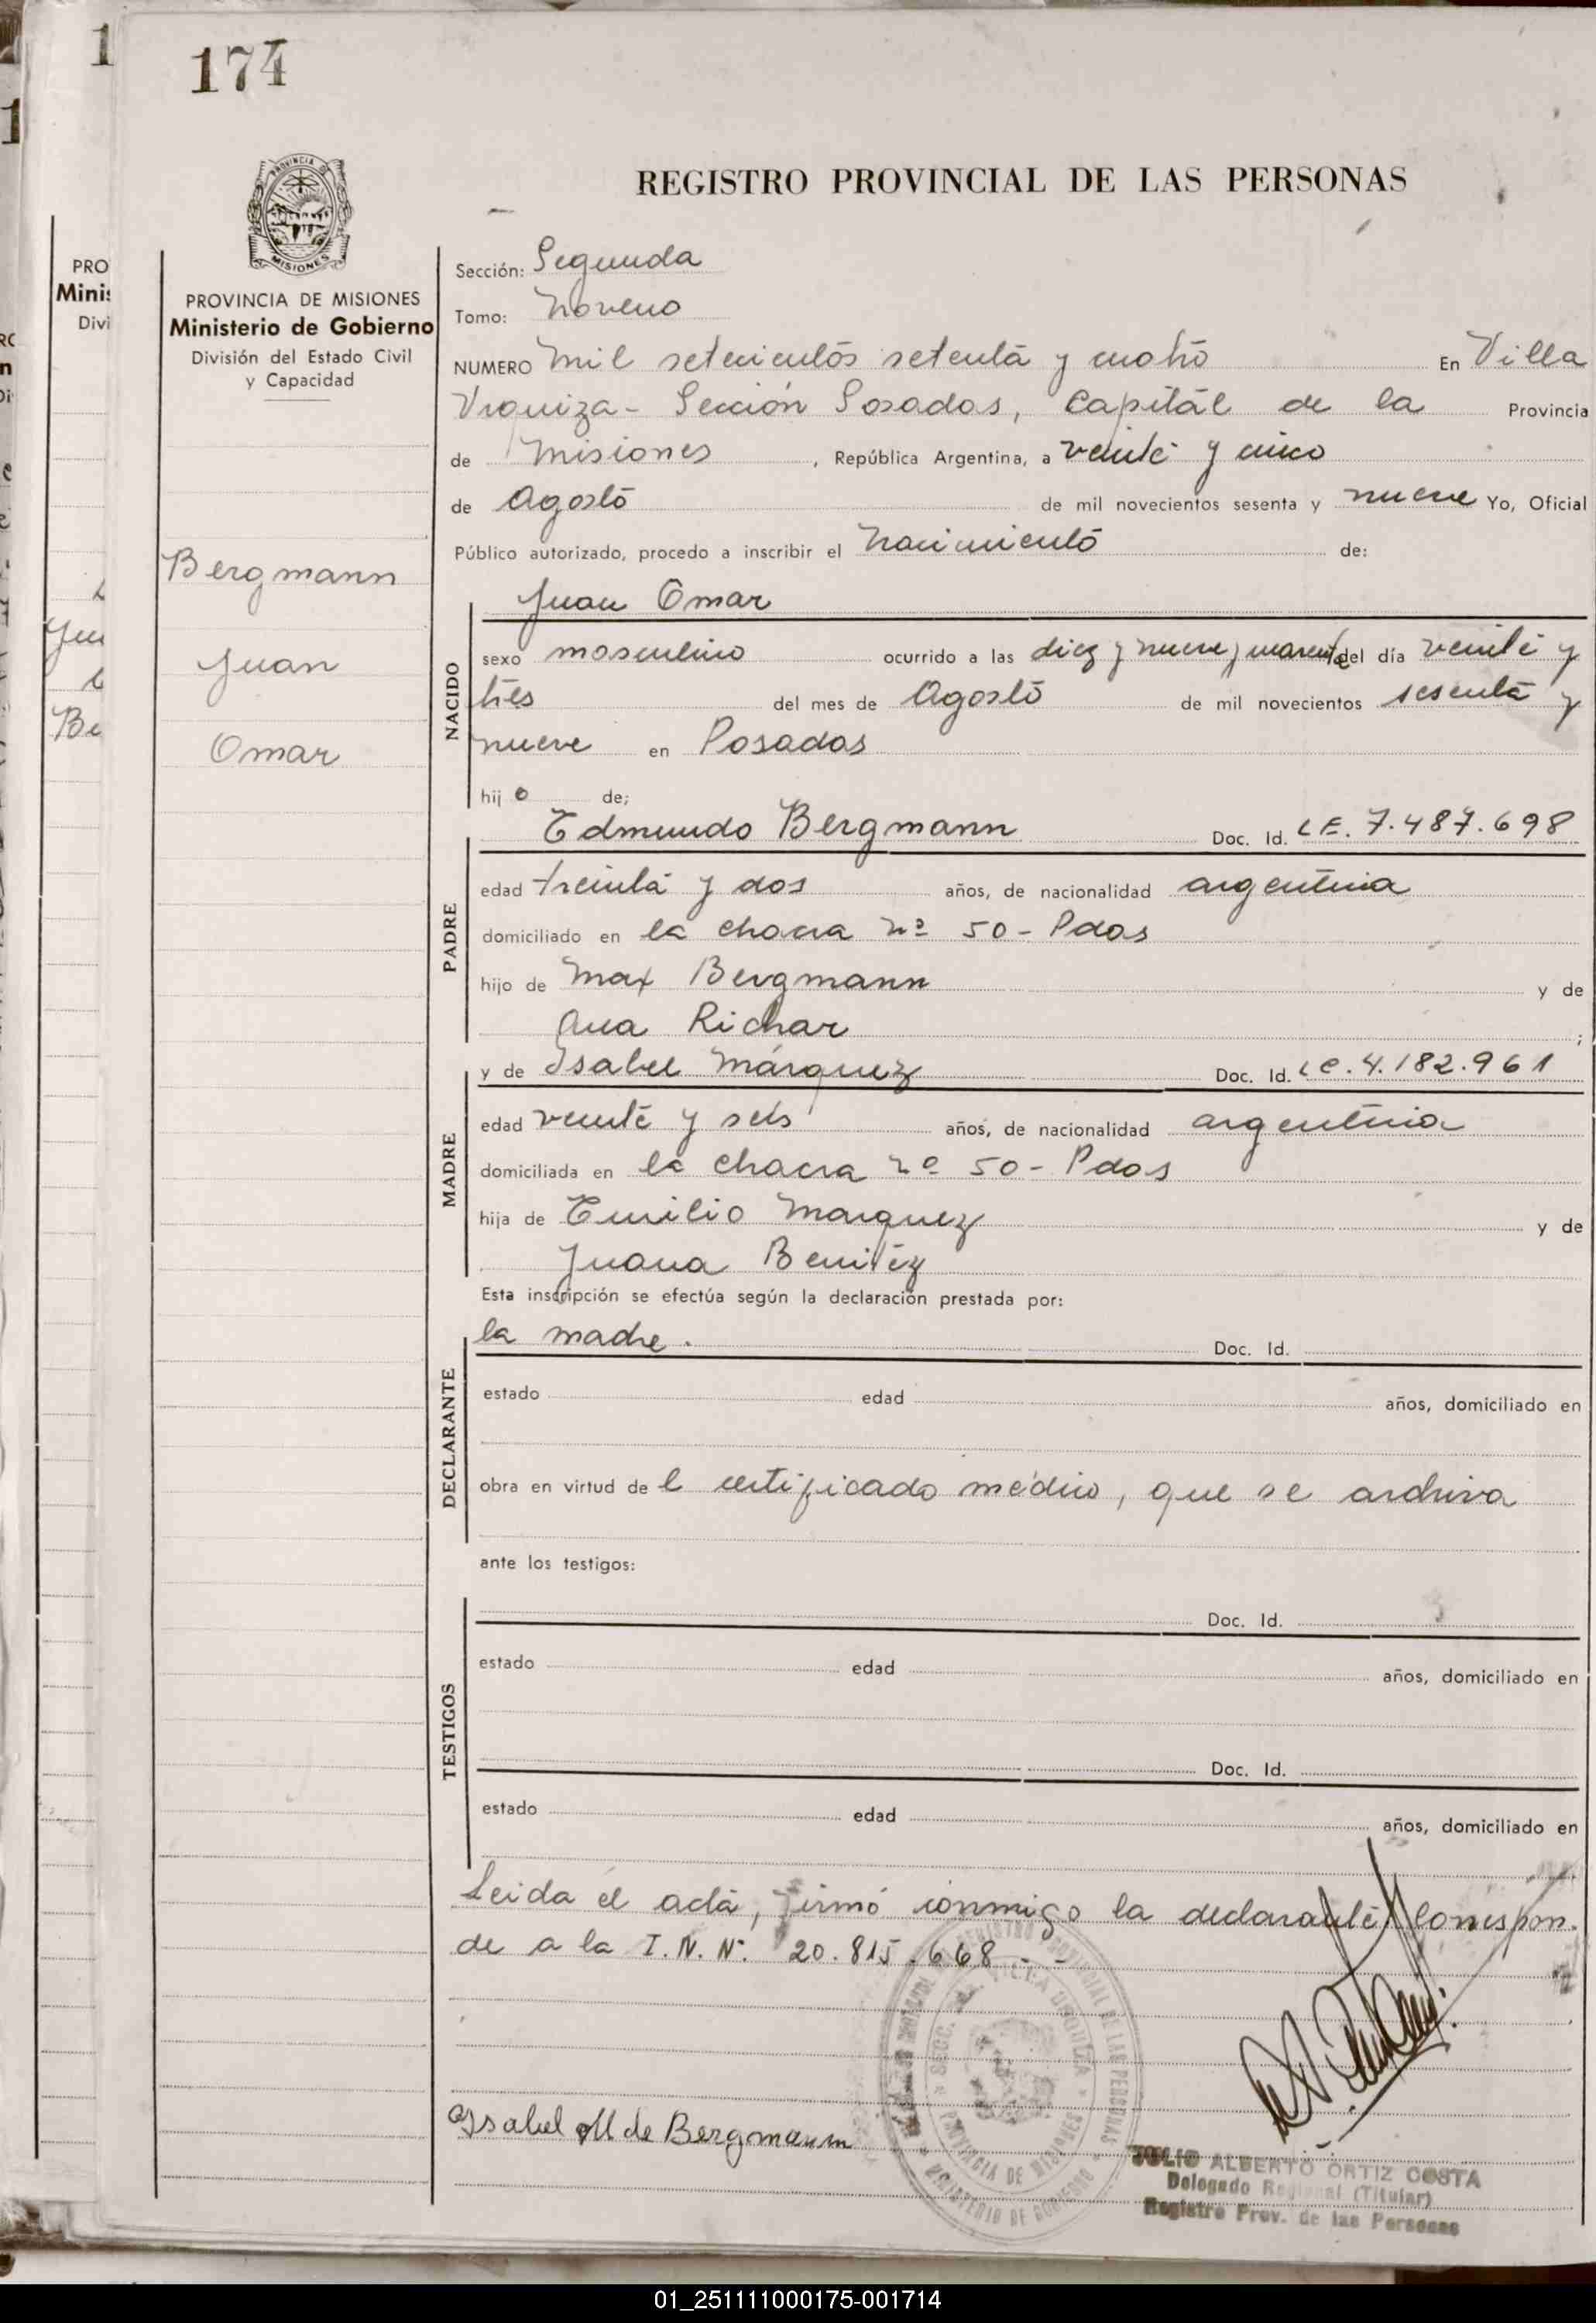 174
REGISTRO PROVINCIAL DE LAS PERSONAS
PROVINCIA DE MISIONES
Ministerio de Gobierno
División del Estado Civil
y Capacidad
Bergmann
Juan
Omar
Sección: Segunda
Tomo: Noveno
NUMERO Mil setecientos setenta y cuatro En Villa
Urquiza - Sección Posadas, Capital de la Provincia
de Misiones, República Argentina, a veinte y cinco
de Agosto de mil novecientos sesenta y nueve Yo, Oficial
Público autorizado, procedo a inscribir el Nacimiento de:
Juan Omar
NACIDO
sexo masculino ocurrido a las diez y nueve y cuarenta del día veinte y
tres del mes de Agosto de mil novecientos sesenta y
nueve en Posadas
hij o de;
Edmundo Bergmann Doc. Id. LE. 7.487.698
PADRE
edad treinta y dos años, de nacionalidad argentina
domiciliado en la chacra nº 50 - Pdas
hijo de Max Bergmann y de
Ana Richar ;
y de Isabel Márquez Doc. Id. LC. 4.182.961
MADRE
edad veinte y seis años, de nacionalidad argentina
domiciliada en la chacra nº 50 - Pdas
hija de Emilio Marquez y de
Juana Benitez
Esta inscripción se efectúa según la declaración prestada por:
la madre. Doc. Id.
DECLARANTE
estado edad años, domiciliado en
obra en virtud de l certificado médico, que se archiva
ante los testigos:
Doc. Id.
TESTIGOS
estado edad años, domiciliado en
Doc. Id.
estado edad años, domiciliado en
Leida el acta, firmó conmigo la declarante. Correspon-
de a la I.N. Nº 20.815.668 - -
Isabel M de Bergmann
SECC. VILLA URQUIZA
PROVINCIA DE MISIONES
REGISTRO PROVINCIAL DE LAS PERSONAS
MINISTERIO DE GOBIERNO
JULIO ALBERTO ORTIZ COSTA
Delegado Regional (Titular)
Registro Prov. de las Personas
01_251111000175-001714